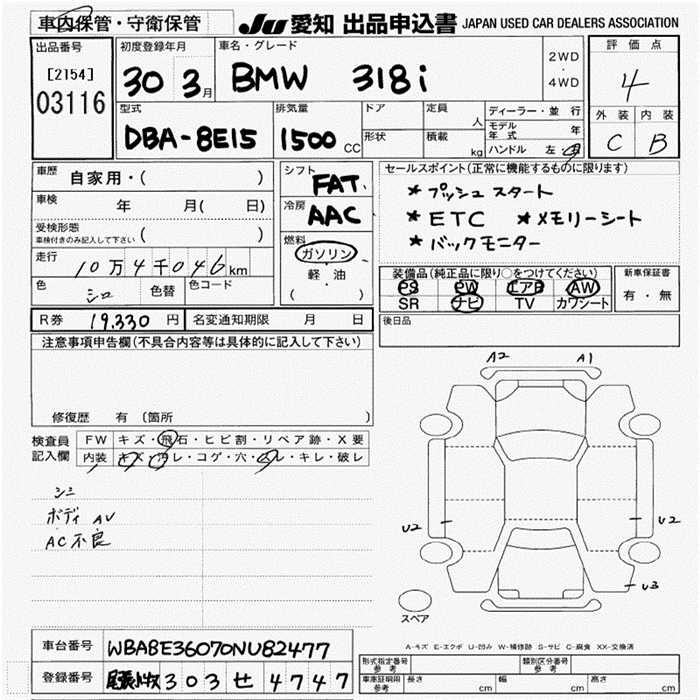 車内保管・守衛保管 JU 愛知 出品申込書 JAPAN USED CAR DEALERS ASSOCIATION
出品番号 [2154] 03116
初度登録年月 30 3月
車名・グレード BMW 318i
2WD・4WD
評価点 4
外装 C 内装 B
型式 DBA-8E15
排気量 1500 CC
ドア 形状
定員 人 積載 kg
ディーラー・並行
モデル年式 年
ハンドル 左・右
車歴 自家用・( )
車検 年 月( 日)
受検形態 車検付きのみ記入して下さい ( )
走行 10万4千046km
色 シロ 色替 色コード
シフト FAT
冷房 AAC
燃料 ガソリン
軽・油
( )
セールスポイント(正常に機能するものに限ります)
*プッシュスタート
*ETC *メモリーシート
*バックモニター
装備品(純正品に限り○をつけてください)
PS PW エアB AW
SR ナビ TV カワシート
新車保証書 有・無
後日品
R券 19,330円 名変通知期限 月 日
注意事項申告欄(不具合内容等は具体的に記入して下さい)
修復歴 有 〔箇所 〕
検査員記入欄
FW キズ・飛石・ヒビ割・リペア跡・X要
内装 キズ・汚レ・コゲ・穴・スレ・キレ・破レ
シミ
ボディ AV
AC不良
A2 A1
U2 U2
U3
スペア
A-キズ E-エクボ U-凹み W-補修跡 S-サビ C-腐食 XX-交換済
車台番号 WBA8E36070NU82477
登録番号 尾張小牧 303 せ 4747
形式指定番号 参考 類別区分番号 参考
車庫証明用 参考 長さ cm 幅 cm 高さ cm